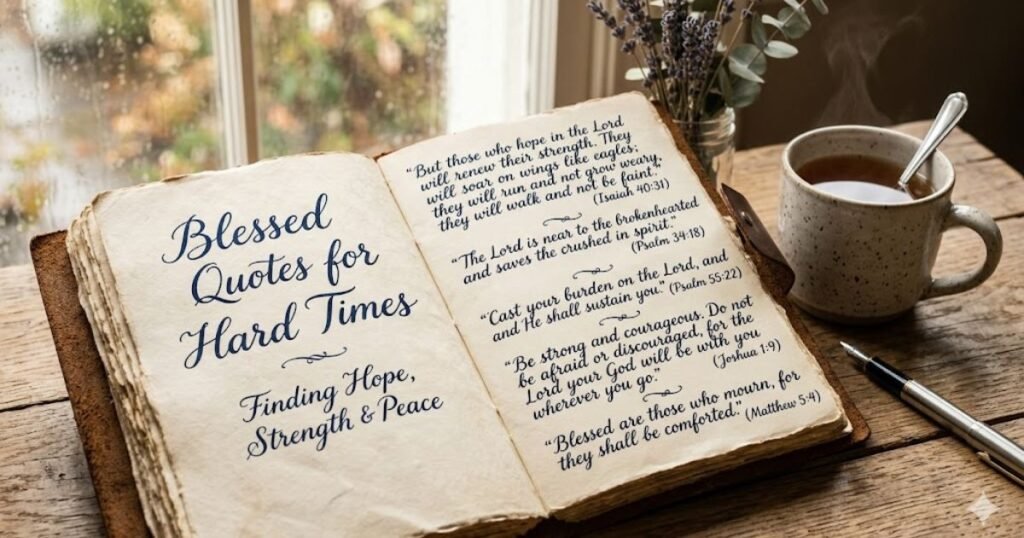 Blessed
Quotes for
Hard Times
Finding Hope,
Strength & Peace
“But those who hope in the Lord
will renew their strength. They
will soar on wings like eagles;
they will run and not grow weary,
they will walk and not be faint.”
(Isaiah 40:31)
“The Lord is near to the brokenhearted
and saves the crushed in spirit.”
(Psalm 34:18)
“Cast your burden on the Lord, and
and He shall sustain you.” (Psalm 55:22)
“Be strong and courageous. Do not
be afraid or discouraged, for the
Lord your God will be with you
wherever you go.”
(Joshua 1:9)
“Blessed are those who mourn, for
they shall be comforted.” (Matthew 5:4)